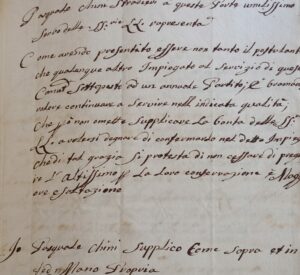 Pasquale Chini Stradiere a queste Porte umilissimo
Servo delle SS.rie LL. rappresenta
Come avendo presentito essere non tanto il postulante
che qualunque altro Impiegato al Servizio di questa
Comu.tà Sottoposto ad un annuale Partito, e bramando
volere continuare a Servire nell indicata qualità,
Che però non omette Supplicare la bontà delle SS.
LL. a volersi degnare di confermarlo nel detto Impiego
che di tal grazia Si protesta di non cessare di pregare
l'Altissimo per La loro conservazione e Maggiore
esaltazione
Io Pasquale Chini Supplico Come sopra et in
fede Mano Propria